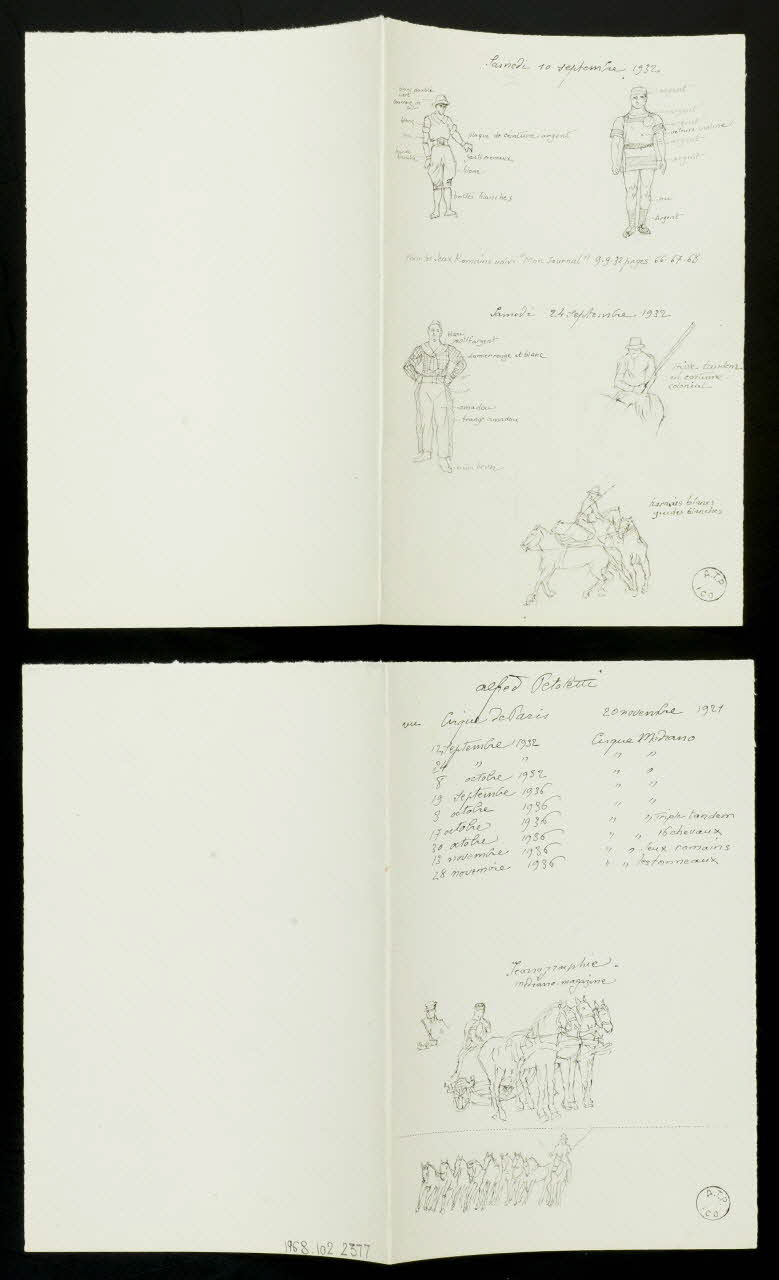 Samedi 10 septembre 1932.
blanc
plaque de ceinture argent
blanc
bottes blanches
argent
argent
argent
argent
argent
nu
Argent
pour les Jeux Romains voir "Mon Journal" 9.9.32 pages 66-67-68
Samedi 24 septembre 1932
blanc
motif argent
damier rouge et blanc
amadou
frange amadou
Triple tandem
en costume
colonial
harnais blancs
guides blanches
A.T.P
ICO
alfred Petoletti
vu Cirque de Paris 20 novembre 1921
12 septembre 1932 Cirque Medrano
24 " " " "
8 octobre 1932 " "
19 septembre 1936 " "
3 octobre 1936 " "
17 octobre 1936 " " Triple tandem
30 octobre 1936 " " 16 chevaux
13 novembre 1936 " " Jeux romains
28 novembre 1936 " " les tonneaux
Iconographie.
médrano-magazine
A.T.P
ICO
1968.102.2377